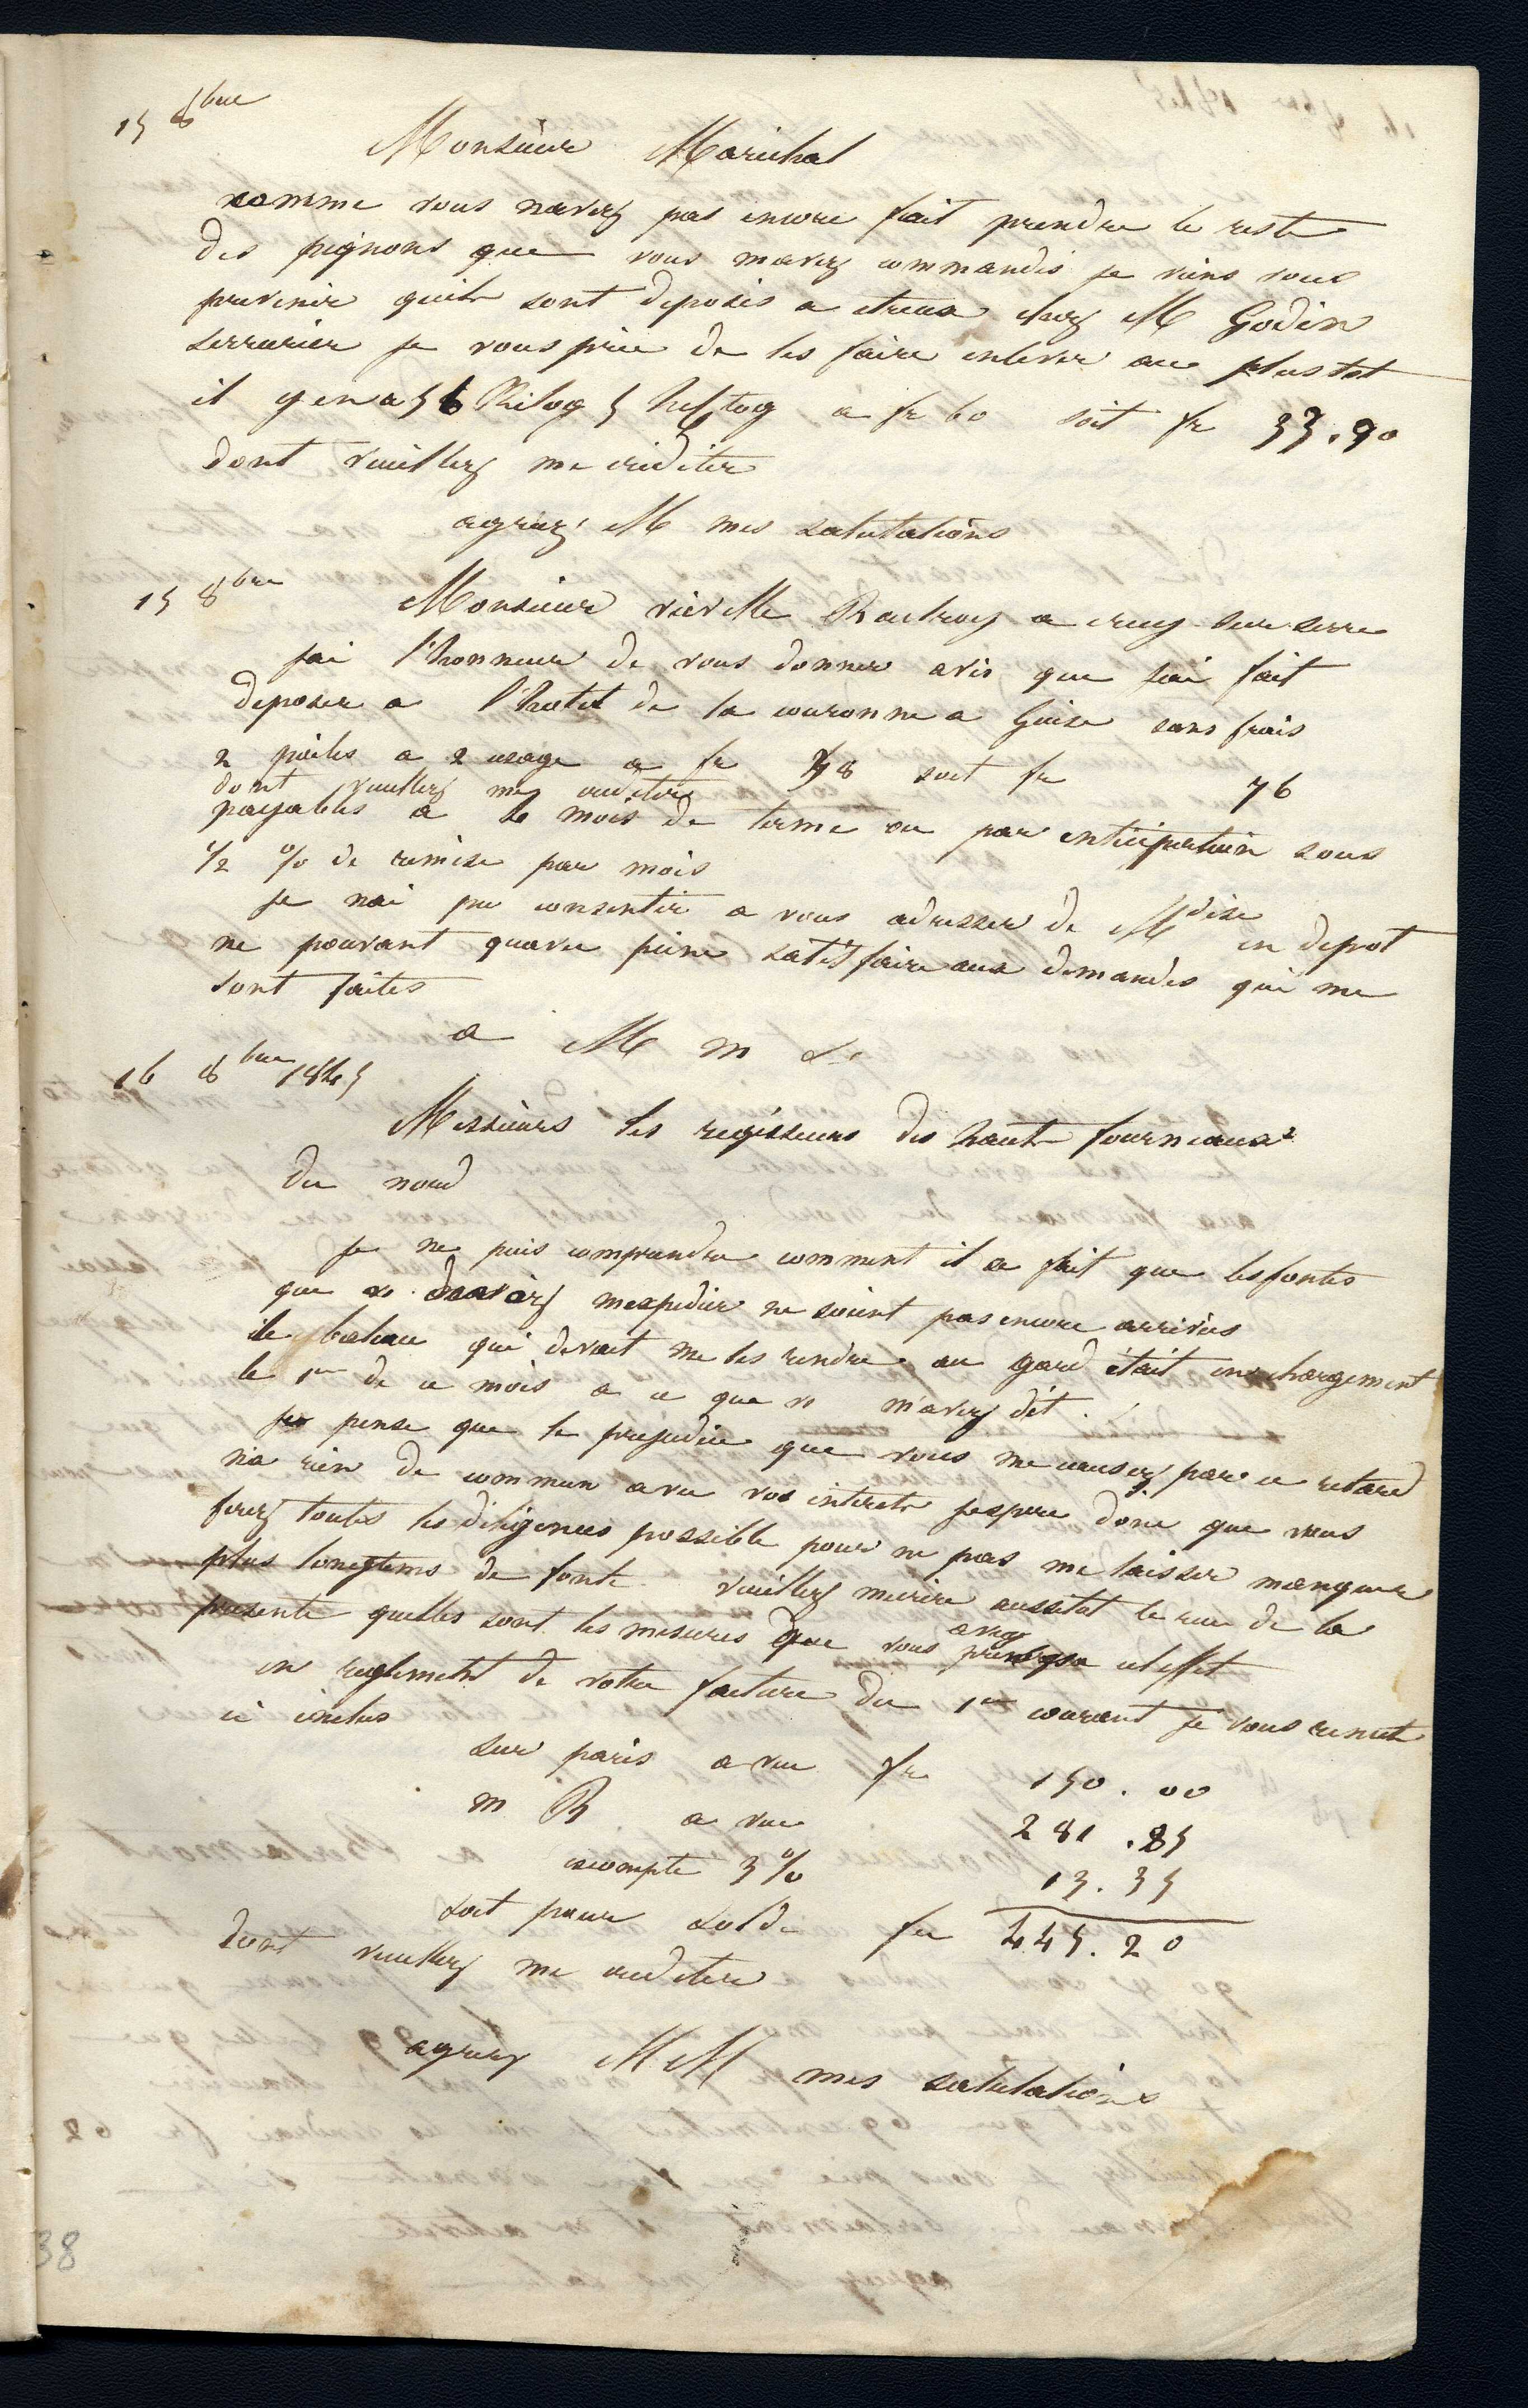 15 8bre
Monsieur Marichal
comme vous navez pas encore fait prendre le reste
des pignons que vous mavez commandés je viens vous
prevenir quils sont deposés a etreux chez M Godin
serrurier je vous prie de les faire enlever au plus tot
il y en a 56 Kilog 5 hectog a fr 60 soit fr 33.90
dont veuillez me créditer
agreez M mes salutations
15 8bre
Monsieur vieville Rautroy a crecy sur serre
jai l'honneur de vous donner avis que jai fait
deposer a l'hotel de la couronne a Guise sans frais
2 poiles a 2 usage a fr 38 soit fr 76
dont veuillez me créditer
payables a 6 mois de terme ou par enticipation sous
1/2 % de remise par mois
je nai pu consentir a vous adresser de Mdise en depot
ne pouvant quavec peine satisfaire aux demandes qui me
sont faites
a M m s
16 8bre 1845
Messieurs les regisseurs des hauts fourneaux
du nord
je ne puis comprendre comment il a fait que les fontes
que v. mexpedier ne soient pas encore arrivées
le bateau qui devait me les rendre au gard était en chargement
le 1er de ce mois a ce que v m'avez dit.
je pense que le prejudice que vous me causez par ce retard
na rien de commun avec vos interets jespere donc que vous
ferez toutes les diligences possible pour ne pas me laisser manquer
plus longtems de fonte. Veuillez mecrire aussitot le recu de la
presente quelles sont les mesures que vous avez prises a cet effet
en reglement de votre facture du 1er courant je vous remet
ci inclus
sur paris a vue fr 150.00
m B a vue 281.85
escompte 3 % 13.35
soit pour solde fr 445.20
dont veuillez me crediter
agreez MM mes salutations
38